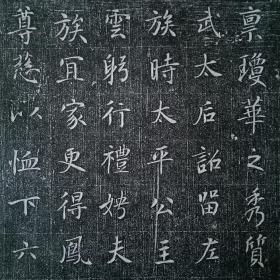 禀瓊華之秀質
武太后詔留左
族時太平公主
雲躬行禮娉夫
族冝家更得鳳
尊慈以恤下六